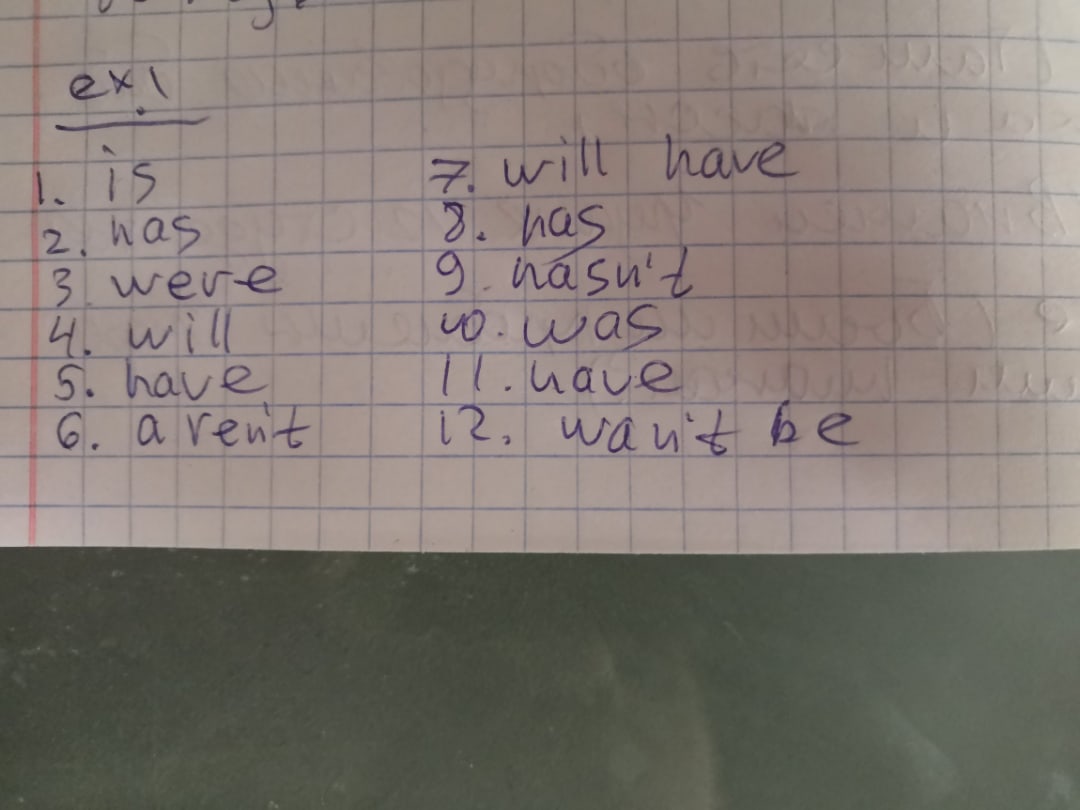 ex.1
1. is
2. has
3 were
4. will
5. have
6. aren't
7. will have
8. has
9. hasn't
10. was
11. have
12. wan't be